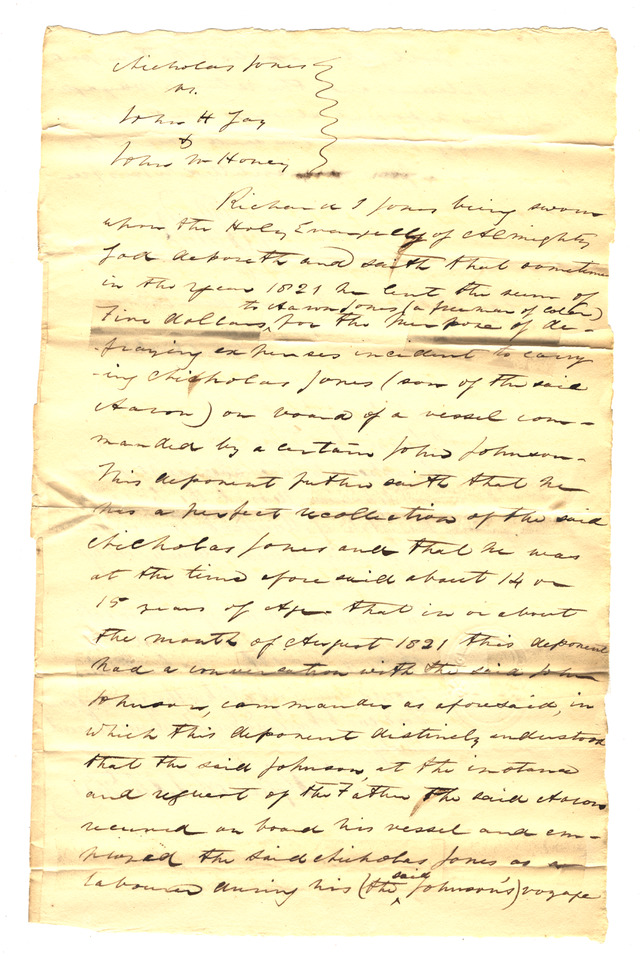 Nicholas Jones
vs.
John H Jay
&
John W Honey
Richard I Jones being sworn
upon the Holy Evangelly of Almighty
God deposeth and saith that sometime
in the year 1821 he lent the sum of
to Aaron Jones (a freeman of color)
Five dollars, for the purpose of de-
fraying expenses incident to carry
ing Nicholas Jones (son of the said
Aaron) on board of a vessel com-
manded by a certain John Johnson.
This deponent futher saith that he
has a perfect recollection of the said
Nicholas Jones and that he was
at the time aforesaid about 14 or
15 years of Age that in or about
the month of August 1821 this deponent
had a conversation with the said John
Johnson, commander as aforesaid, in
which this deponent distinctly understood
that the said Johnson, at the instance
and request of the Father the said Aaron
received on board his vessel and em-
ployed the said Nicholas Jones as a
said
labourer during his (the Johnson's) voyage